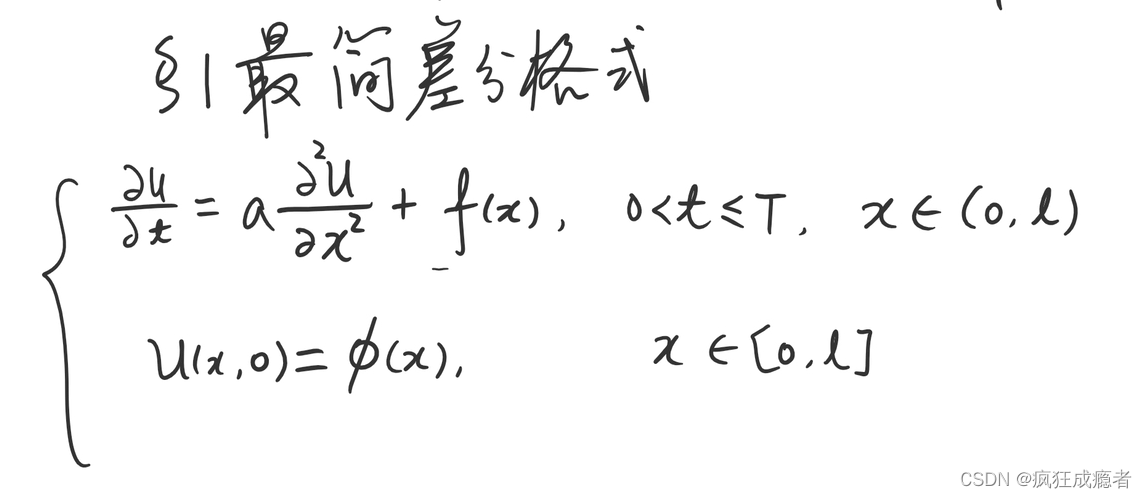 §1 最简差分格式
∂u/∂t = a ∂²u/∂x² + f(x), 0<t≤T, x∈(0,l)
u(x,0)=ϕ(x), x∈[0,l]
CSDN @疯狂成瘾者